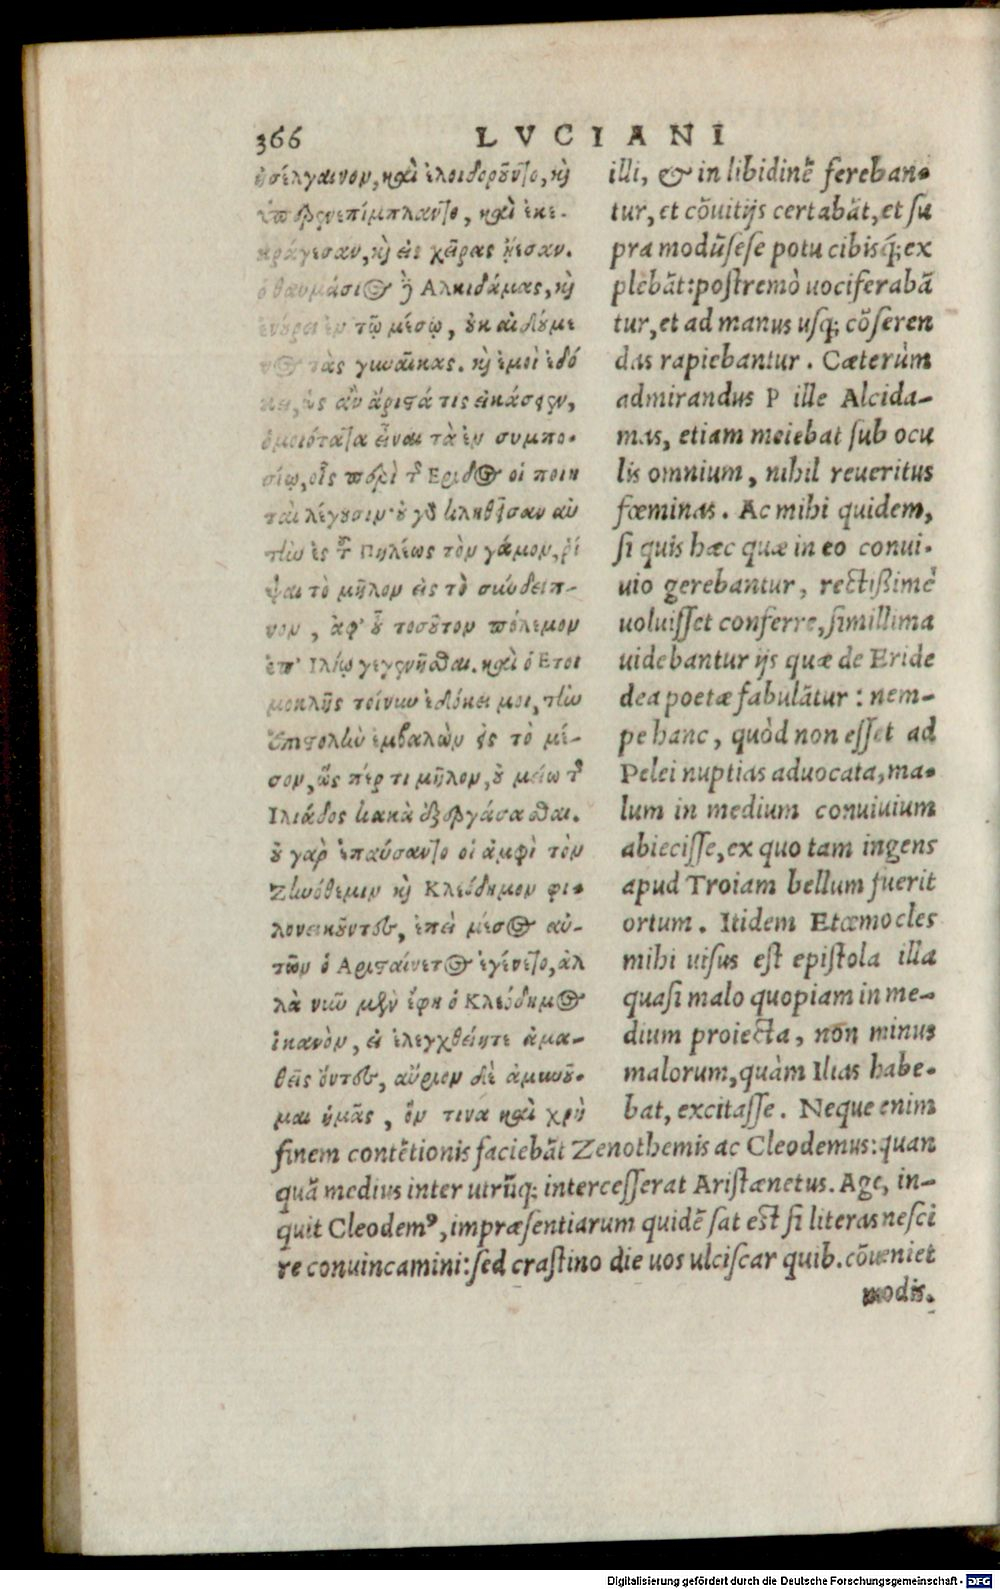 366 LVCIANI
ἠσέλγαινον, καὶ ἐλοιδοροῦντο, καὶ
ὑπερενεπίμπλαντο, καὶ ἐκε-
κράγεσαν, καὶ εἰς χεῖρας ᾔεσαν.
ὁ θαυμάσιος δὲ Αλκιδάμας, καὶ
ἐνούρει ἐν τῷ μέσῳ, οὐκ αἰδούμε
νος τὰς γυναῖκας. καὶ ἐμοὶ ἐδό
κει, ὡς ἂν ἄριστά τις εἰκάσειεν,
ὁμοιότατα εἶναι τὰ ἐν συμπο-
σίῳ, οἷς περὶ τῆς Εριδος οἱ ποιη
ταὶ λέγουσιν· οὐ γὰρ κληθεῖσαν αὐ
τὴν ἐς τοῦ Πηλέως τὸν γάμον, ῥί
ψαι τὸ μῆλον εἰς τὸ σύνδειπ-
νον, ἀφ' οὗ τοσοῦτον πόλεμον
ἐπ' Ιλίῳ γεγενῆσθαι. καὶ ὁ Ετοι
μοκλῆς τοίνυν ἐδόκει μοι, τὴν
ἐπιστολὴν ἐμβαλὼν ἐς τὸ μέ-
σον, ὥς πέρ τι μῆλον, οὐ μείω τῆς
Ιλιάδος κακὰ ἐξεργάσασθαι.
οὐ γὰρ ἐπαύσαντο οἱ ἀμφὶ τὸν
Ζηνόθεμιν καὶ Κλεόδημον φι-
λονεικοῦντες, ἐπεὶ μέσος αὐ-
τῶν ὁ Αρισταίνετος ἐγένετο, ἀλ
λὰ νῦν μὲν ἔφη ὁ Κλεόδημος
ἱκανὸν, εἰ ἐλεγχθείητε ἀμα-
θεῖς ὄντες, αὔριον δὲ ἀμυνοῦ-
μαι ὑμᾶς, ὃν τινα καὶ χρὴ
illi, & in libidinẽ fereban-
tur, et cõuitijs certabãt, et su
pra modũ sese potu cibisq́; ex
plebãt: postremò uociferabã
tur, et ad manus usq; cõseren
das rapiebantur. Cæterùm
admirandus P ille Alcida-
mas, etiam meiebat sub ocu
lis omnium, nihil reueritus
fœminas. Ac mihi quidem,
si quis hæc quæ in eo conui-
uio gerebantur, rectißimè
uoluisset conferre, simillima
uidebantur ijs quæ de Eride
dea poetæ fabulãtur: nem-
pe hanc, quòd non esset ad
Pelei nuptias aduocata, ma-
lum in medium conuiuium
abiecisse, ex quo tam ingens
apud Troiam bellum fuerit
ortum. Itidem Etœmocles
mihi uisus est epistola illa
quasi malo quopiam in me-
dium proiecta, non minus
malorum, quàm Ilias habe-
bat, excitasse. Neque enim
finem contẽtionis faciebãt Zenothemis ac Cleodemus: quan
quã medius inter utrũq; intercesserat Aristænetus. Age, in-
quit Cleodemꝰ, impræsentiarum quidẽ sat est si literas nesci
re conuincamini: sed crastino die uos ulciscar quib. cõueniet
modis.
Digitalisierung gefördert durch die Deutsche Forschungsgemeinschaft - DFG